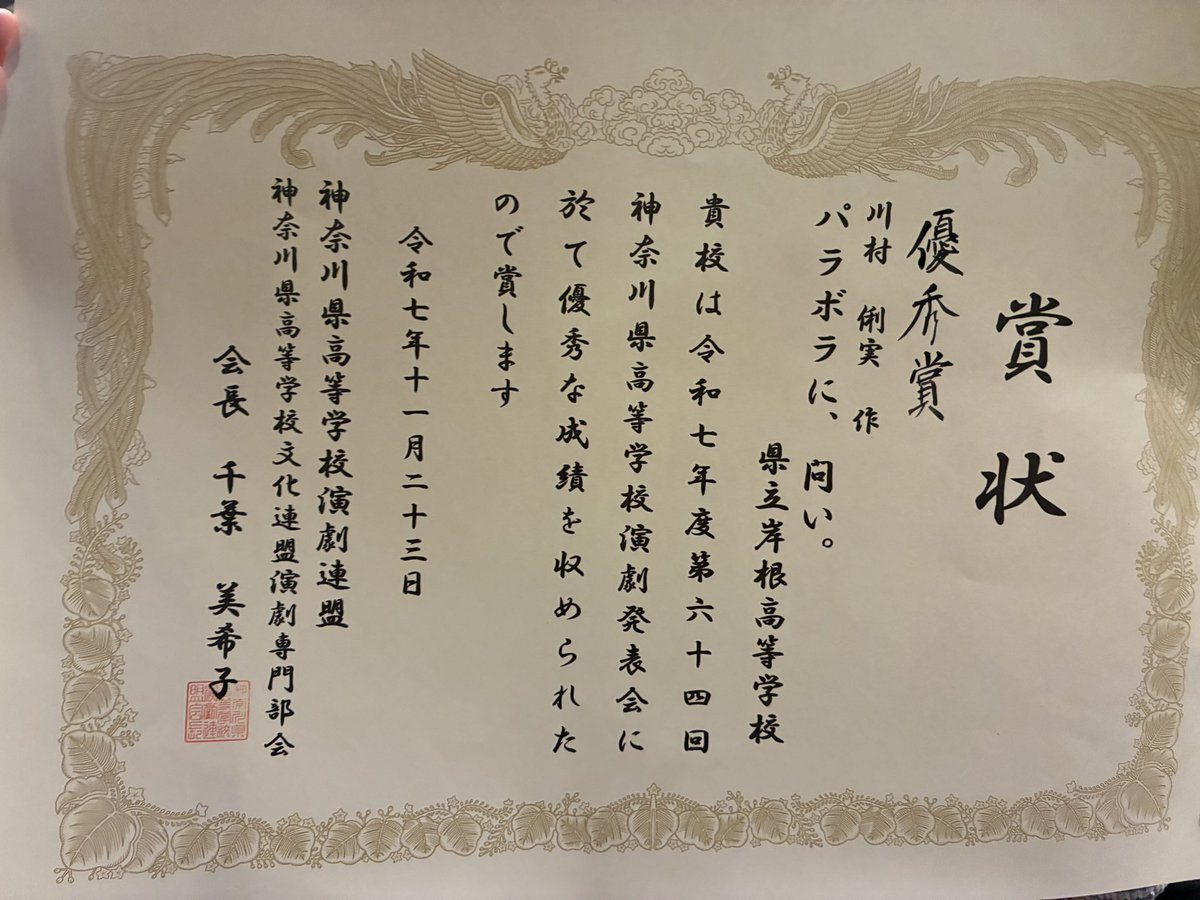 賞状
優秀賞
川村 俐実 作
パラボラに、問い。
県立岸根高等学校
貴校は令和七年度第六十四回
神奈川県高等学校演劇発表会に
於て優秀な成績を収められた
ので賞します
令和七年十一月二十三日
神奈川県高等学校演劇連盟
神奈川県高等学校文化連盟演劇専門部会
会長 千葉 美希子